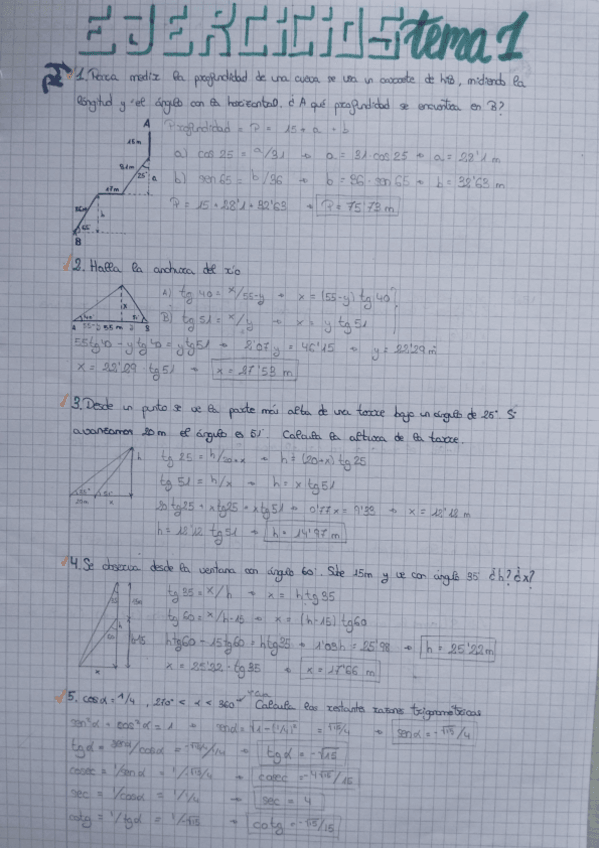 EJERCICIOS tema 1
1. Para medir la profundidad de una cueva se usa un cordel de hilo, midiendo la
longitud y el ángulo con la horizontal. ¿A qué profundidad se encuentra en B?
A
15m
25°
a
17m
b
B
Profundidad = P = 15 + a + b
a) cos 25 = a/31 → a = 31 cos 25 → a = 28'1 m
b) sen 65 = b/36 → b = 36 · sen 65 → b = 32'63 m
P = 15 + 28'1 + 32'63 → P = 75'73 m
2. Halla la anchura del río
A) tg 40 = x/55-y → x = (55-y) tg 40
B) tg 51 = x/y → x = y tg 51
A 55-y 55 m y B
55 tg 40 - y tg 40 = y tg 51 → 2'07 y = 46'15 → y = 22'29 m
x = 22'29 · tg 51 → x = 27'53 m
3. Desde un punto se ve la parte más alta de una torre bajo un ángulo de 25°. Si
avanzamos 20 m el ángulo es 51°. Calcula la altura de la torre.
tg 25 = h/20+x → h = (20+x) tg 25
tg 51 = h/x → h = x tg 51
20 tg 25 + x tg 25 = x tg 51 → 0'77 x = 9'33 → x = 12'12 m
h = 12'12 tg 51 → h = 14'97 m
4. Se observa desde la ventana con ángulo 60°. Sube 15m y ve con ángulo 35 ¿h? ¿x?
tg 35 = x/h → x = h tg 35
tg 60 = x/h-15 → x = (h-15) tg 60
h tg 60 - 15 tg 60 = h tg 35 → 1'03 h = 25'98 → h = 25'22 m
x = 25'22 · tg 35 → x = 17'66 m
5. cos α = 1/4, 270° < α < 360° Calcula las restantes razones trigonométricas
sen²α + cos²α = 1 → sen α = √1-(1/4)² = √15/4 → sen α = -√15/4
tg α = sen α/cos α = -√15/4/1/4 → tg α = -√15
cosec = 1/sen α = 1/-√15/4 → cosec = -4√15/15
sec = 1/cos α = 1/1/4 → sec = 4
cotg = 1/tg α = 1/-√15 → cotg = -√15/15